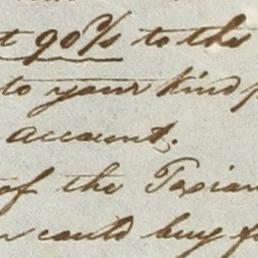 t 90% to the
to your kind
account.
of the Texian
could buy